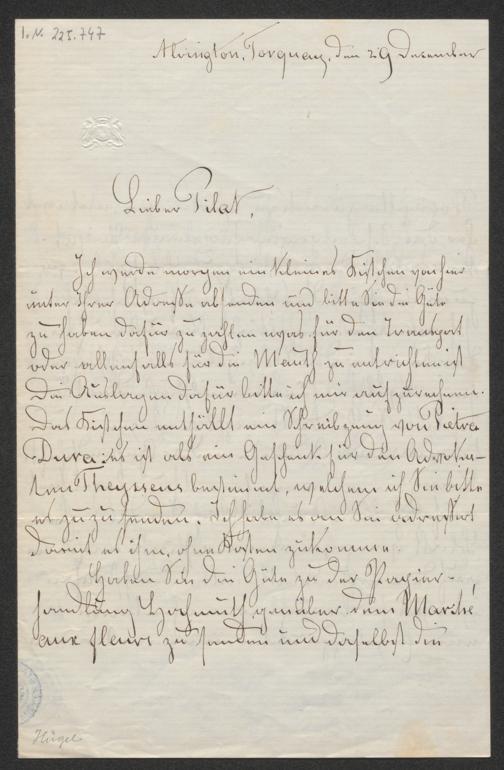 I. N. 225.747
Abington, Torquay, den 29 Dezember
Lieber Pilat,
Ich werde morgen ein kleines Kistchen von hier
unter Ihrer Adresse absenden und bitte Sie die Güte
zu haben dafür zu zahlen was für den Transport
oder allenfalls für die Mauth zu entrichten ist
Die Auslagen dafür bitte ich mir aufzurechnen.
Das Kistchen enthällt ein Schreibzeug von Pietra
Dura: es ist als ein Geschenk für den Advoka-
ten Theyssens bestimmt, welchem ich Sie bitte
es zuzusenden. Ich habe es an Sie adressirt
damit es ihm, ohne Kosten zukomme.
Haben Sie die Güte zu der Papier-
handlung Hochmuth genüber dem Marché
aux fleurs zu senden und daselbst die
Hügel